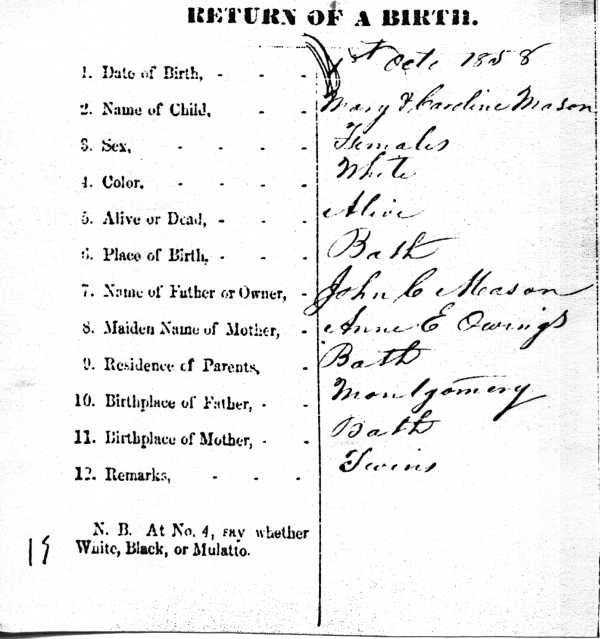 RETURN OF A BIRTH.
1. Date of Birth, - - - 1st Octo 1858
2. Name of Child, - - Mary & Caroline Mason
3. Sex, - - - - Females
4. Color. - - - - White
5. Alive or Dead, - - - Alive
6. Place of Birth, - - - Bath
7. Name of Father or Owner, - John C Mason
8. Maiden Name of Mother, - Anne E Owings
9. Residence of Parents, - Bath
10. Birthplace of Father, - - Montgomery
11. Birthplace of Mother, - - Bath
12. Remarks, - - - Twins
N. B. At No. 4, say whether
White, Black, or Mulatto.